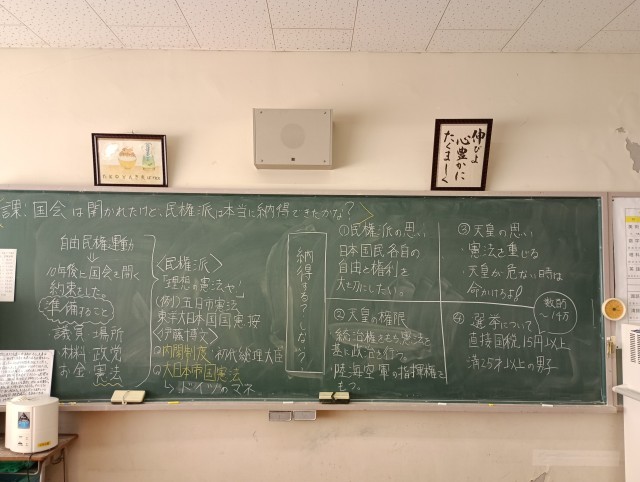 伸びよ
心豊かに
たくましく
課.国会は開かれたけど、民権派は本当に納得できたかな?
自由民権運動
↓
10年後に国会を開く
約束をした。
準備すること
議員 場所
材料 政党
お金 憲法
<民権派>
「理想の憲法や!」
(例)五日市憲法
東洋大日本国国憲按
<伊藤博文>
○内閣制度 初代総理大臣
○大日本帝国憲法
↳ドイツのマネ
納得する?しない?
①民権派の思い
日本国民各自の
自由と権利を
大切にしたい。
②天皇の権限
統治権をもち憲法を
基に政治を行う。
・陸海空軍の指揮権を
もつ。
③天皇の思い
・憲法を重じる
・天皇が危ない時は
命かけろよ!
④選挙について
直接国税15円以上
満25才以上の男子